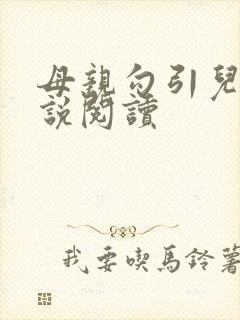 母親勾引兒
說閱讀
我要喫馬鈴薯